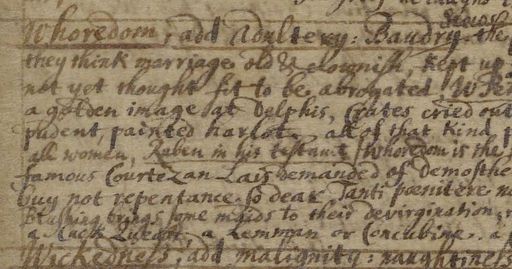 Whoredom, add Adultery: Baudry. the
they think marriage old & clownish, kept up
not yet thought fit to be abrogated
a golden image at Delphis, Crates cried out
pudent, painted harlot. all of that kind
all women, Ruben in his testamt whoredom is the
famous Courtezan Lais demanded of demosthe
buy not repentance so dear, Tanti poenitere
Blushing brings some maids to their devirgination,
a Quean, a Lemman or Concubine, a
Wickedness, add malignity: naughtiness